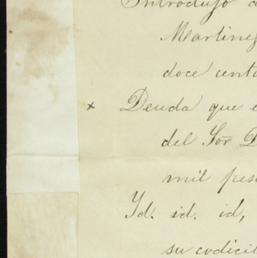 Introdujo
Martinez
doce cent
x Deuda que
del Sor D
mil pes
Yd. id. id,
su codicil